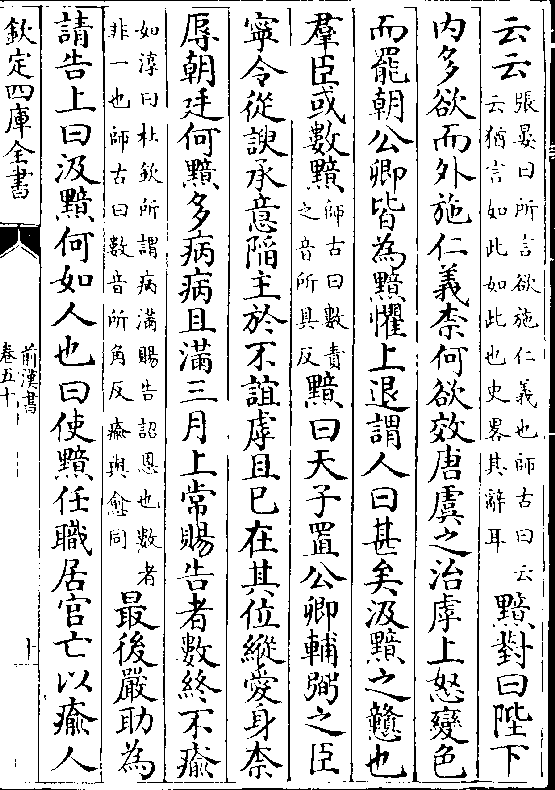 云云張晏曰所言欲施仁義也師古曰云云猶言如此如此也史畧其辭耳黯對曰陛下
内多欲而外施仁義柰何欲效唐虞之治虖上怒變色
而罷朝公卿皆為黯懼上退謂人曰甚矣汲黯之戇也
羣臣或數黯師古曰數責之音所具反黯曰天子置公卿輔弼之臣
寧令從諛承意陷主於不誼虖且已在其位縱愛身柰
辱朝廷何黯多病病且滿三月上常賜告者數終不瘉
如淳曰杜欽所謂病滿賜告詔恩也數者非一也師古曰數音所角反瘉與愈同最後嚴助為
請告上曰汲黯何如人也曰使黯任職居官亡以瘉人
欽定四庫全書
前漢書
卷五十
十